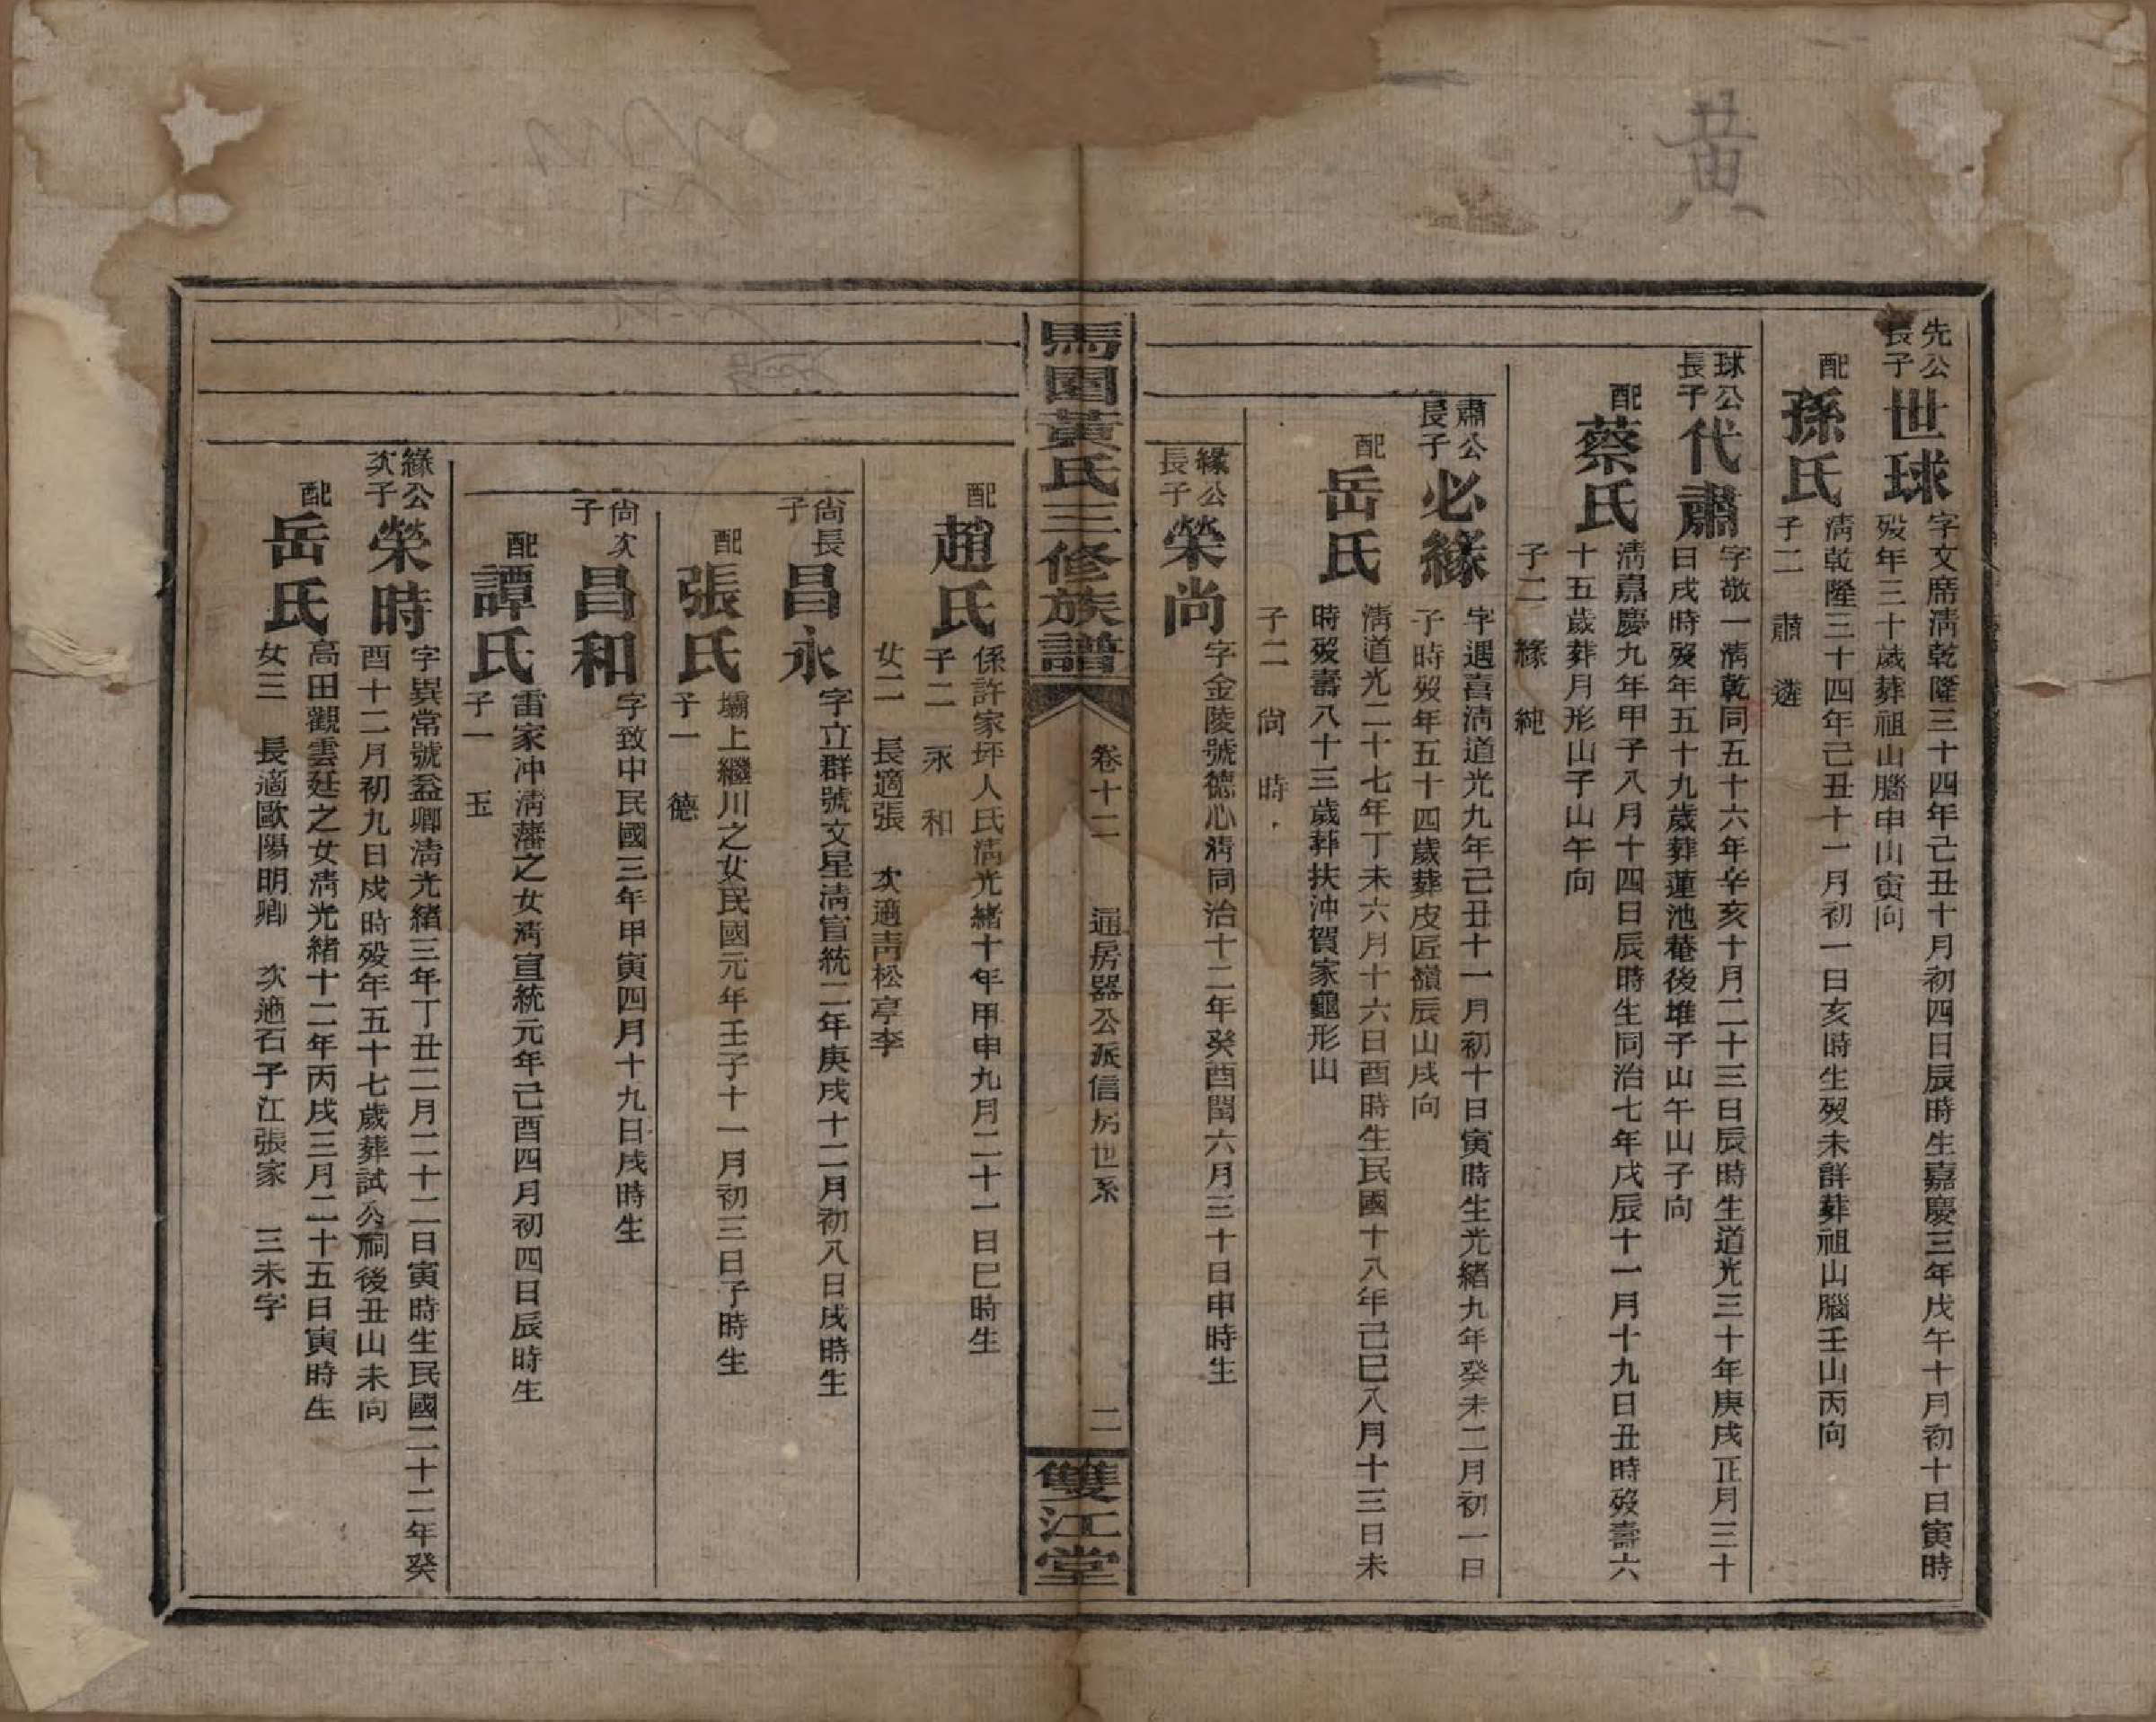 黄
先公
長子
世球
字文席淸乾隆三十四年己丑十月初四日辰時生嘉慶三年戊午十月初十日寅時
歿年三十歲葬祖山腦申山寅向
配
孫氏
淸乾隆三十四年己丑十一月初一日亥時生歿未詳葬祖山腦壬山丙向
子二 肅 遴
球公
長子
代肅
字敬一淸乾同五十六年辛亥十月二十三日辰時生道光三十年庚戌正月三十
日戌時歿年五十九歲葬蓮池菴後堆子山午山子向
配
蔡氏
淸嘉慶九年甲子八月十四日辰時生同治七年戊辰十一月十九日丑時歿壽六
十五歲葬月形山子山午向
子二 緣 純
肅公
長子
必緣
字遇喜淸道光九年己丑十一月初十日寅時生光緒九年癸未二月初一日
子時歿年五十四歲葬皮匠嶺辰山戌向
配
岳氏
淸道光二十七年丁未六月十六日酉時生民國十八年己巳八月十三日未
時歿壽八十三歲葬扶沖賀家龜形山
子二 尙 時
緣公
長子
榮尚
字金陵號德心淸同治十二年癸酉閏六月三十日申時生
馬園黃氏三修族譜
卷十二
通房器公派信房世系
二
雙江堂
配
趙氏
係許家坪人氏淸光緒十年甲申九月二十一日巳時生
子二 永 和
女二 長適張 次適靑松亭李
尙長
子
昌永
字立群號文星淸宣統二年庚戌十二月初八日戌時生
配
張氏
壩上繼川之女民國元年壬子十一月初三日子時生
子一 德
尙次
子
昌和
字致中民國三年甲寅四月十九日戌時生
配
譚氏
雷家冲淸藩之女淸宣統元年己酉四月初四日辰時生
子一 玉
緣公
次子
榮時
字異常號益卿淸光緒三年丁丑二月二十二日寅時生民國二十二年癸
酉十二月初九日戌時歿年五十七歲葬試公祠後丑山未向
配
岳氏
高田觀雲廷之女淸光緒十二年丙戌三月二十五日寅時生
女三 長適歐陽明卿 次適石子江張家 三未字